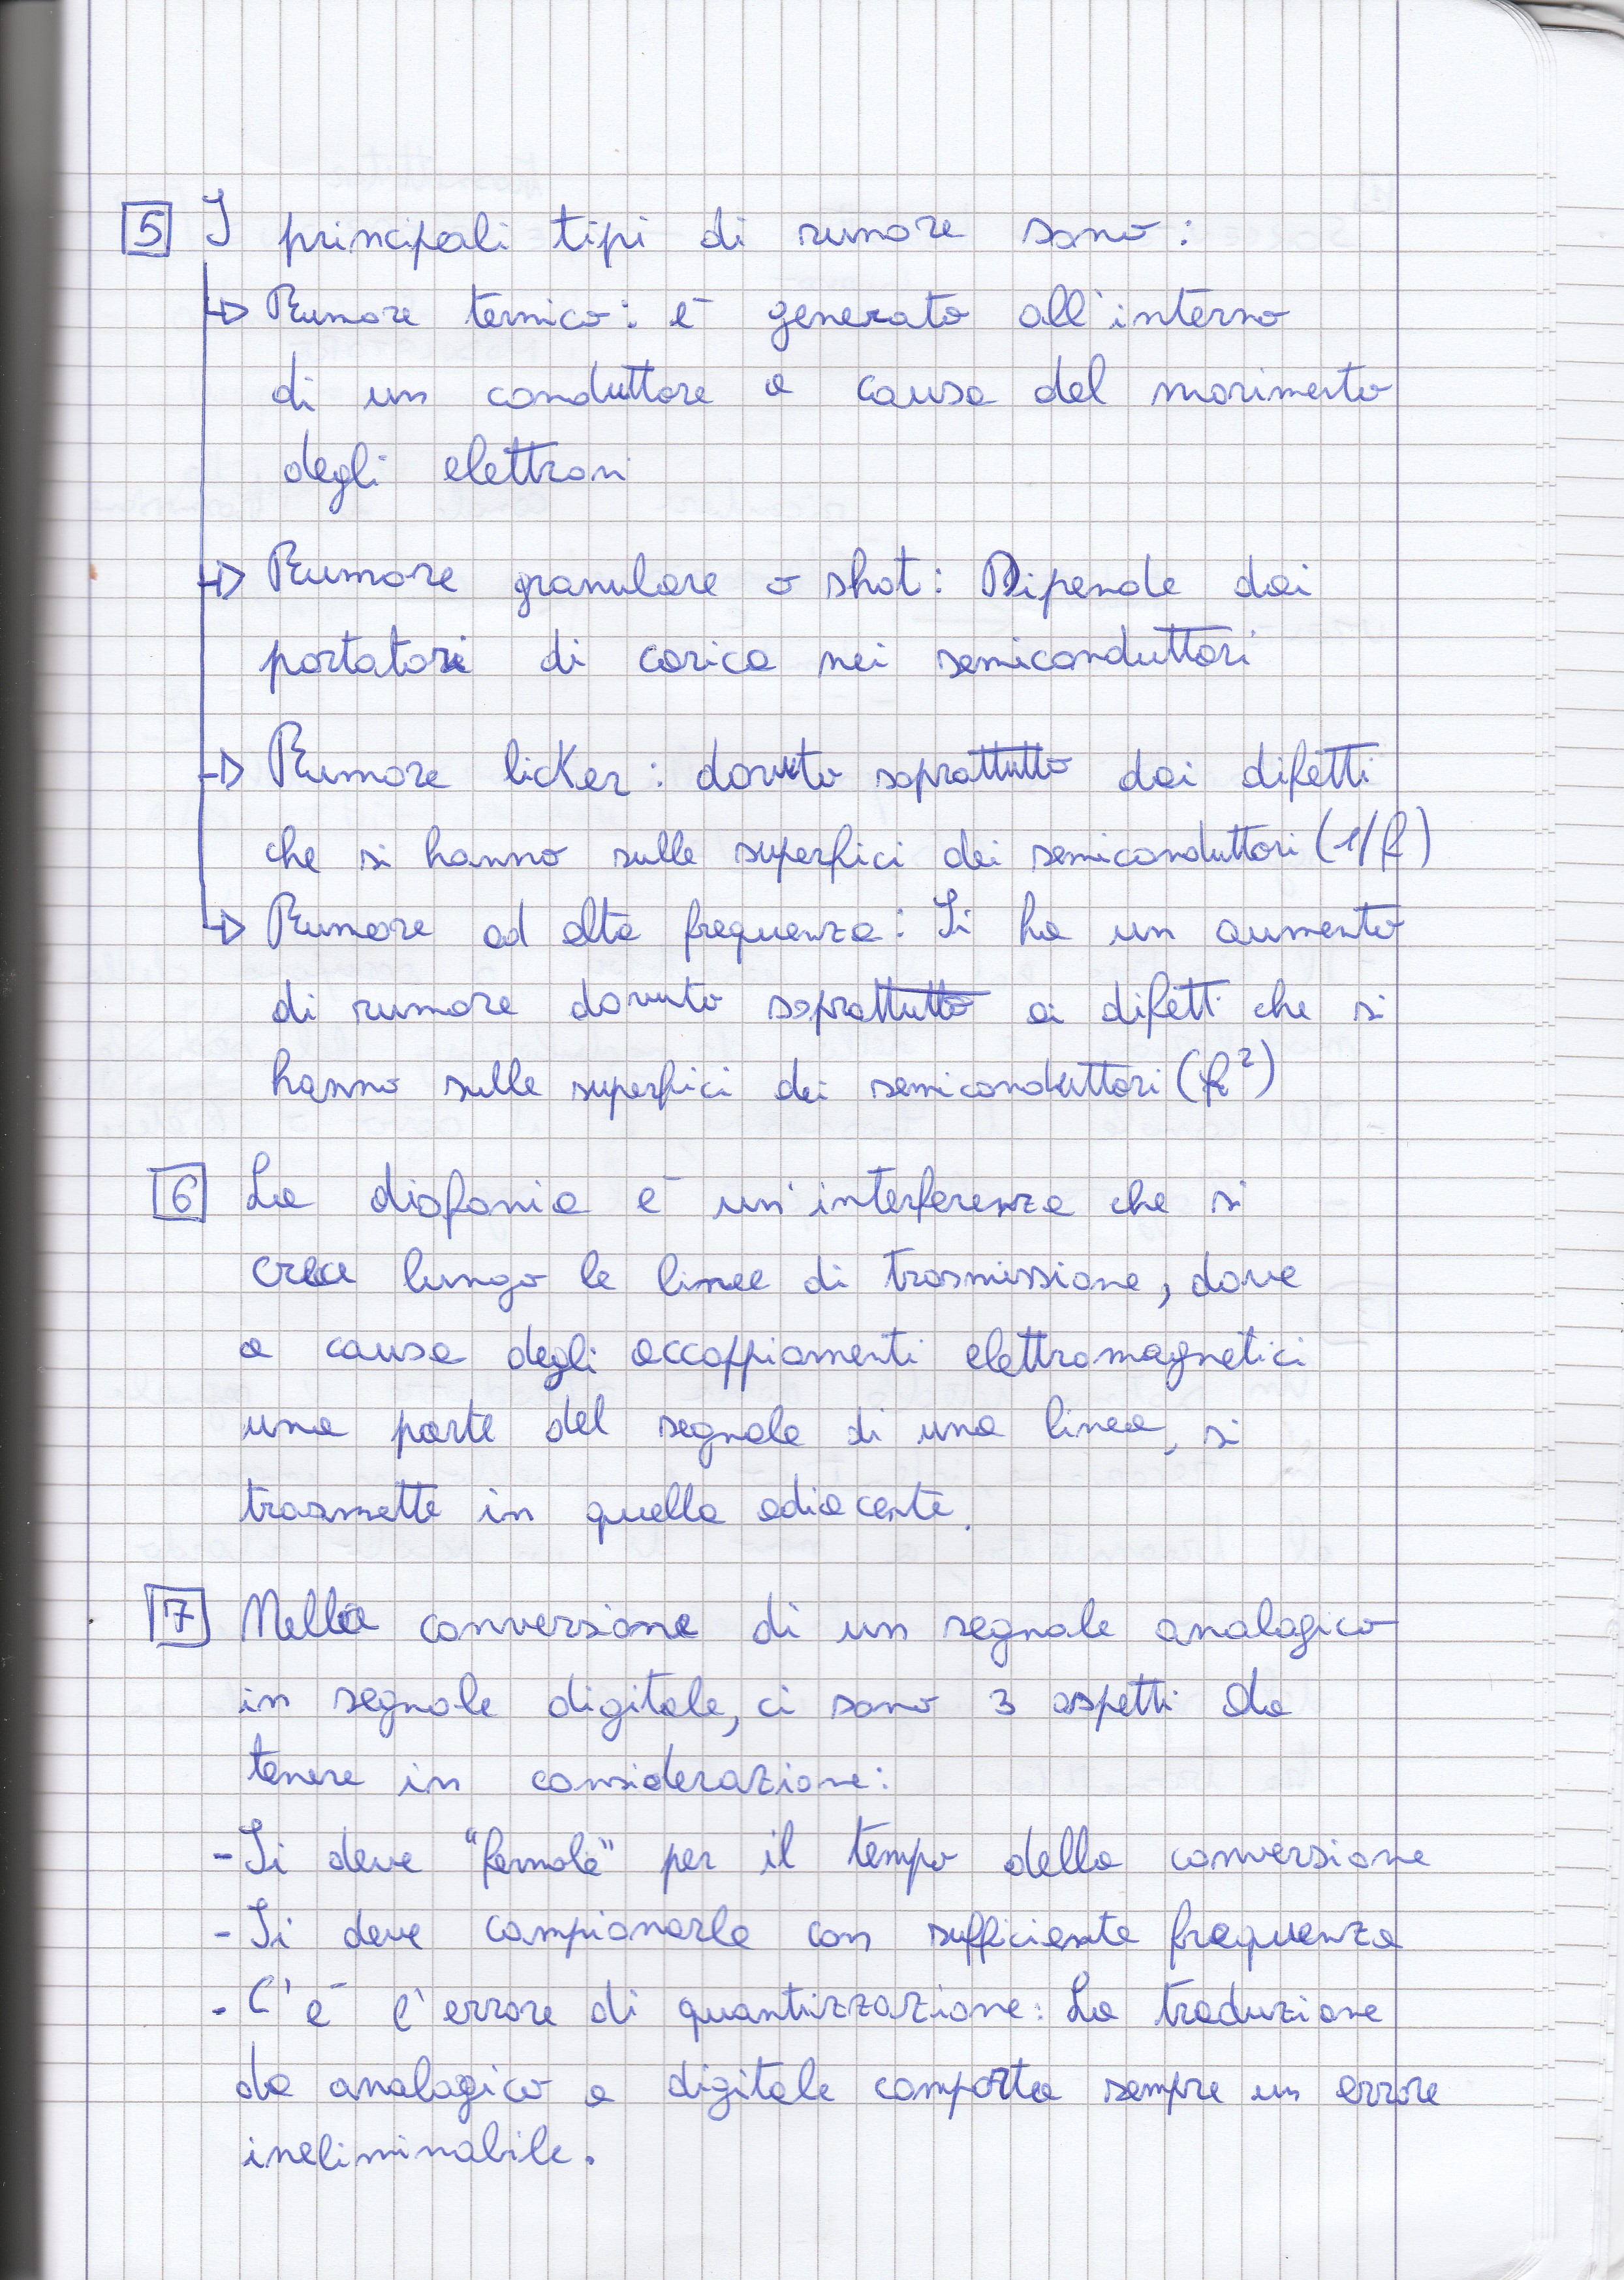 5 I principali tipi di rumore sono:
Rumore termico: è generato all'interno
di un conduttore a causa del movimento
degli elettroni
Rumore granulare o shot: Dipende dai
portatori di carica nei semiconduttori
Rumore licker: dovuto soprattutto dai difetti
che si hanno sulle superfici dei semiconduttori (1/f)
Rumore ad alta frequenza: Si ha un aumento
di rumore dovuto soprattutto ai difetti che si
hanno sulle superfici dei semiconduttori (f²)
6 La diafonia è un'interferenza che si
crea lungo le linee di trasmissione, dove
a causa degli accoppiamenti elettromagnetici
una parte del segnale di una linea, si
trasmette in quella adiacente.
7 Nella conversione di un segnale analogico
in segnale digitale, ci sono 3 aspetti da
tenere in considerazione:
- Si deve "fermale" per il tempo della conversione
- Si deve campionarle con sufficiente frequenza
- C'è l'errore di quantizzazione: La traduzione
da analogico a digitale comporta sempre un errore
ineliminabile.